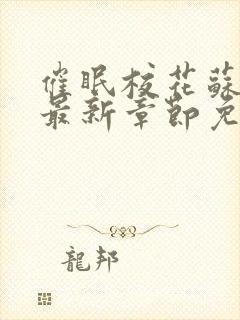 催眠校花蘇
最新章節免
龍邦